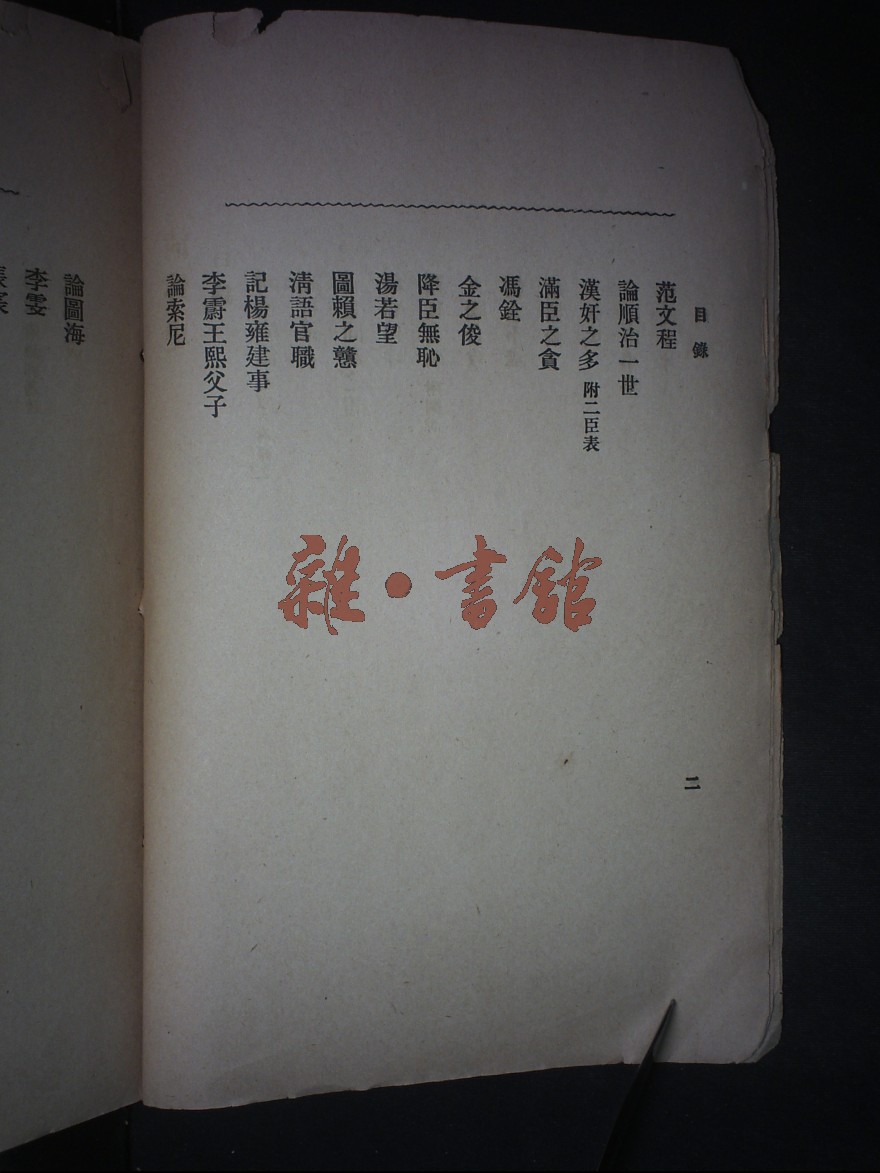 目錄
范文程
論順治一世
漢奸之多 附二臣表
滿臣之貪
馮銓
金之俊
降臣無恥
湯若望
圖賴之戇
清語官職
記楊雍建事
李霨王熙父子
論索尼
二
論圖海
李雯
雜·書館